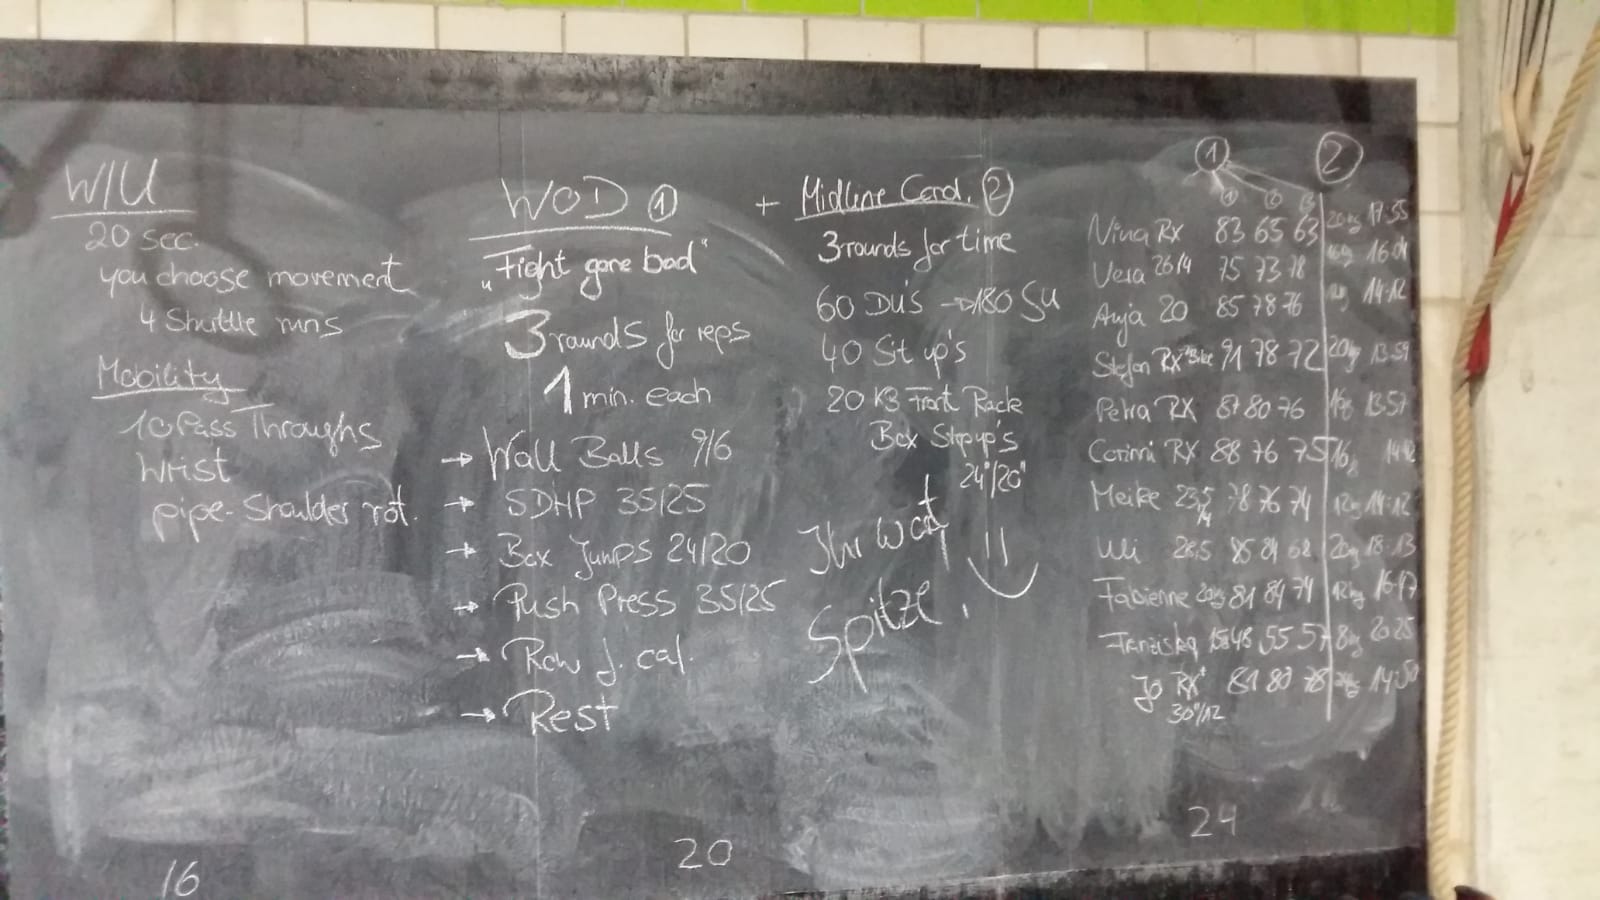 W/U
20 sec.
you choose movement
4 Shuttle runs
Mobility
10 Pass Throughs
Wrist
pipe-Shoulder rot.
16
WOD ①
„Fight gone bad"
3 rounds for reps
1 min. each
→ Wall Balls 9/6
→ SDHP 35/25
→ Box Jumps 24/20
→ Push Press 35/25
→ Row f. cal.
→ Rest
20
+ Midline Cond. ②
3 rounds for time
60 DU's → 180 SU
40 Sit up's
20 KB Front Rack
Box Step up's
24"/20"
Ihr wart
Spitze.
① ②
① ② ③
Nina RX 83 65 63 20kg 17:55
Vera 26/4 75 73 78
Anja 20 85 78 76 14:12
Stefan RX 91 78 72 20kg 13:59
Petra RX 87 80 76 13:57
RX 88 76 75
Meike 78 76 74 12kg 14:12
Uli 20kg 18:13
Fabienne 20kg 81 84 74 12kg 16:17
Franziska 55 57 8kg 20:25
Jo RX⁺ 81 80 78
30"/12
24